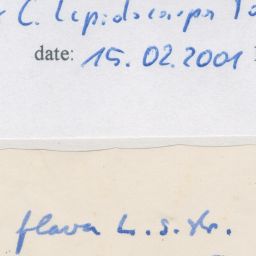 C. lepidocarpa
date: 15.02.2001
flava L. s. str.